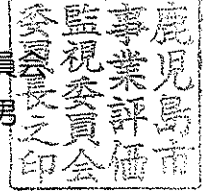 鹿児島市
事業評価
監視委員会
委員長之印
員会
男